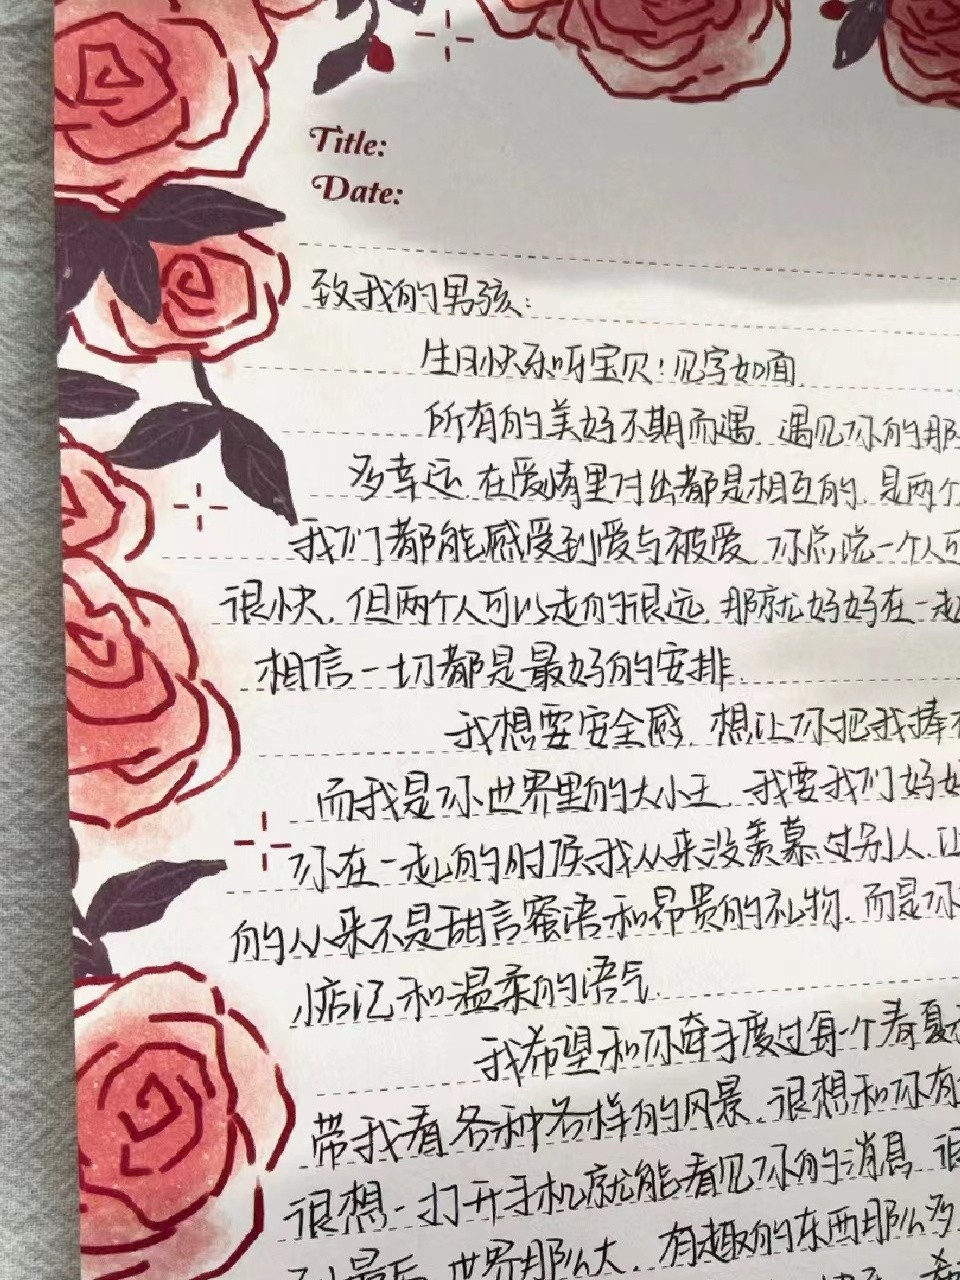 Title:
Date:
致我的男孩:
生日快乐呀宝贝!见字如面
所有的美好不期而遇 遇见你的那
多幸运.在爱情里付出都是相互的.是两个
我们都能感受到爱与被爱 你总说一个人可
很快.但两个人可以走的很远.那就好好在一起
相信一切都是最好的安排.
我想要安全感.想让你把我捧
而我是你世界里的大小王 我要我们好好
你在一起的时候我从来没羡慕过别人.让
的从来不是甜言蜜语和昂贵的礼物.而是你
惦记和温柔的语气.
我希望和你牵手度过每一个春夏
带我看各种各样的风景.很想和你有
很想一打开手机就能看见你的消息 很
到最后 世界那么大.有趣的东西那么多